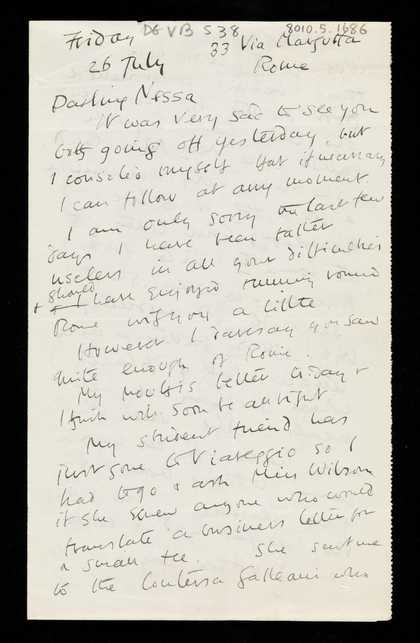 DG VB S 38
8010.5.1686
Friday
33 Via Margutta
26 July
Rome
Darling Nessa
It was very sad to see you
both going off yesterday, but
I consoled myself that if necessary
I can follow at any moment
I am only sorry the last few
days I have been rather
useless in all your difficulties
+ should have enjoyed running round
Rome with you a little
However I daresay you saw
quite enough of Rome.
My mouth is better today +
I think will soon be alright
My student friend has
just gone to Viareggio so I
had to go & ask Miss Wilson
if she knew anyone who would
translate a business letter for
a small fee. She sent me
to the Contessa Galleani who